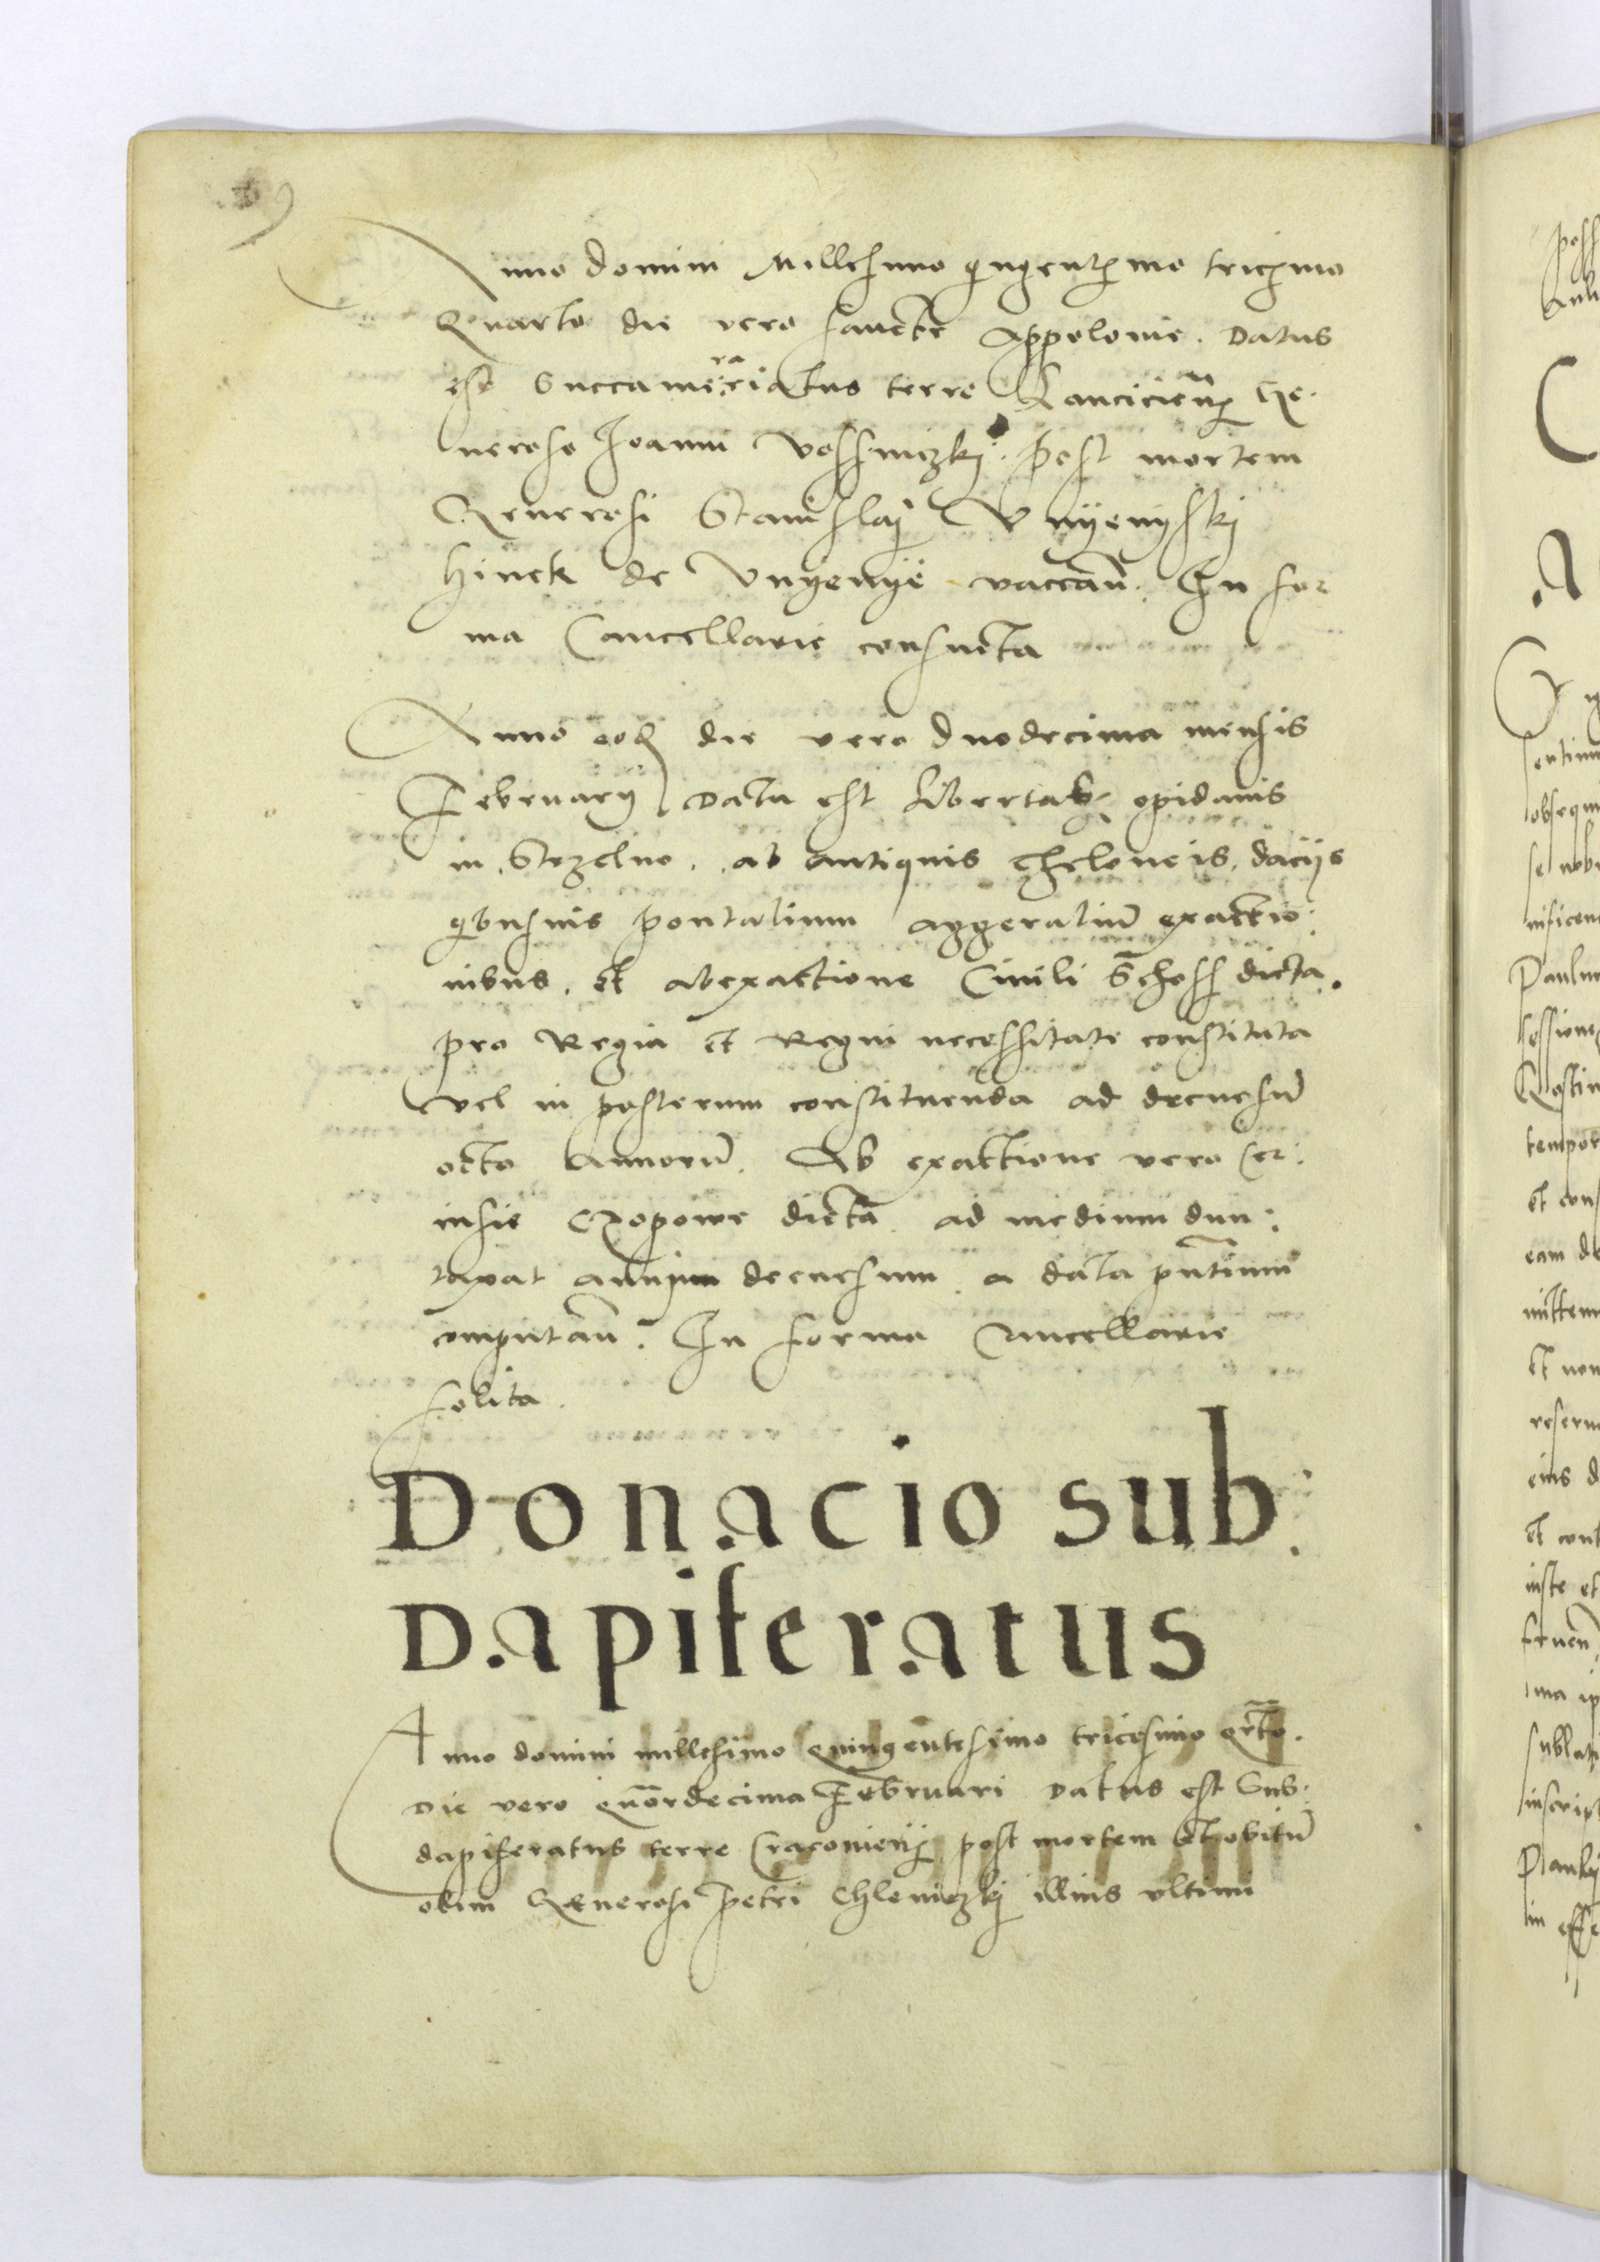 Anno domini Millesimo qngentesimo tricesimo
Quarto die vero sancte Appolonie. Datus
est Succamerariatus terre Lancicien Ge:
neroso Joanni post mortem
Generosi Stanislaj Vnyenyskj
hinek de Vnyenye vaccan. In for
ma Cancellarie consueta
Anno eod die vero duodecima mensis
February Data est libertas opidanis
in Strzelno. ab antiquis theloneis, dacys
pontalium aggeraliu exactio:
nibus. et ab exactione Ciuili Schoss dicta.
pro Regia et Regni necessitate constituta
vel in posterum constituenda ad decursu
octo Annoru. Ab exactione vero cer:
uisie Czopowe dicta ad medium dun:
taxat annum decursum a data pntium
computan. In forma Cancellarie
solita.
Donacio sub:
Dapiferatus
Anno domini millesimo quingentesimo tricesimo qrto.
Die vero quordecima Februari Datus est Sub:
dapiferatus terre Cracouien post mortem et obitu
olim Generosi Petri Chlewiczkj illius vltimi